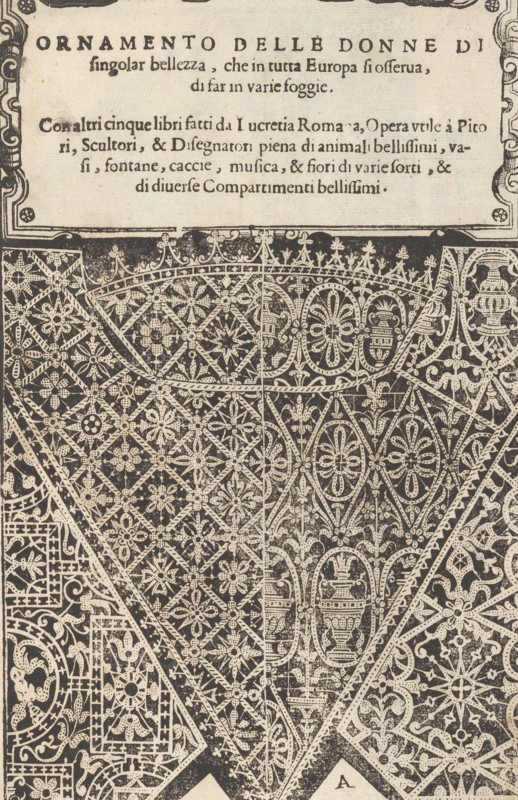 ORNAMENTO DELLE DONNE DI
singolar bellezza, che in tutta Europa si osserua,
di far in varie foggie.
Con altri cinque libri fatti da Lucretia Romana, Opera vtile à Pito
ri, Scultori, & Disegnatori piena di animali bellissimi, va-
si, fontane, caccie, musica, & fiori di varie sorti, &
di diuerse Compartimenti bellissimi.
A